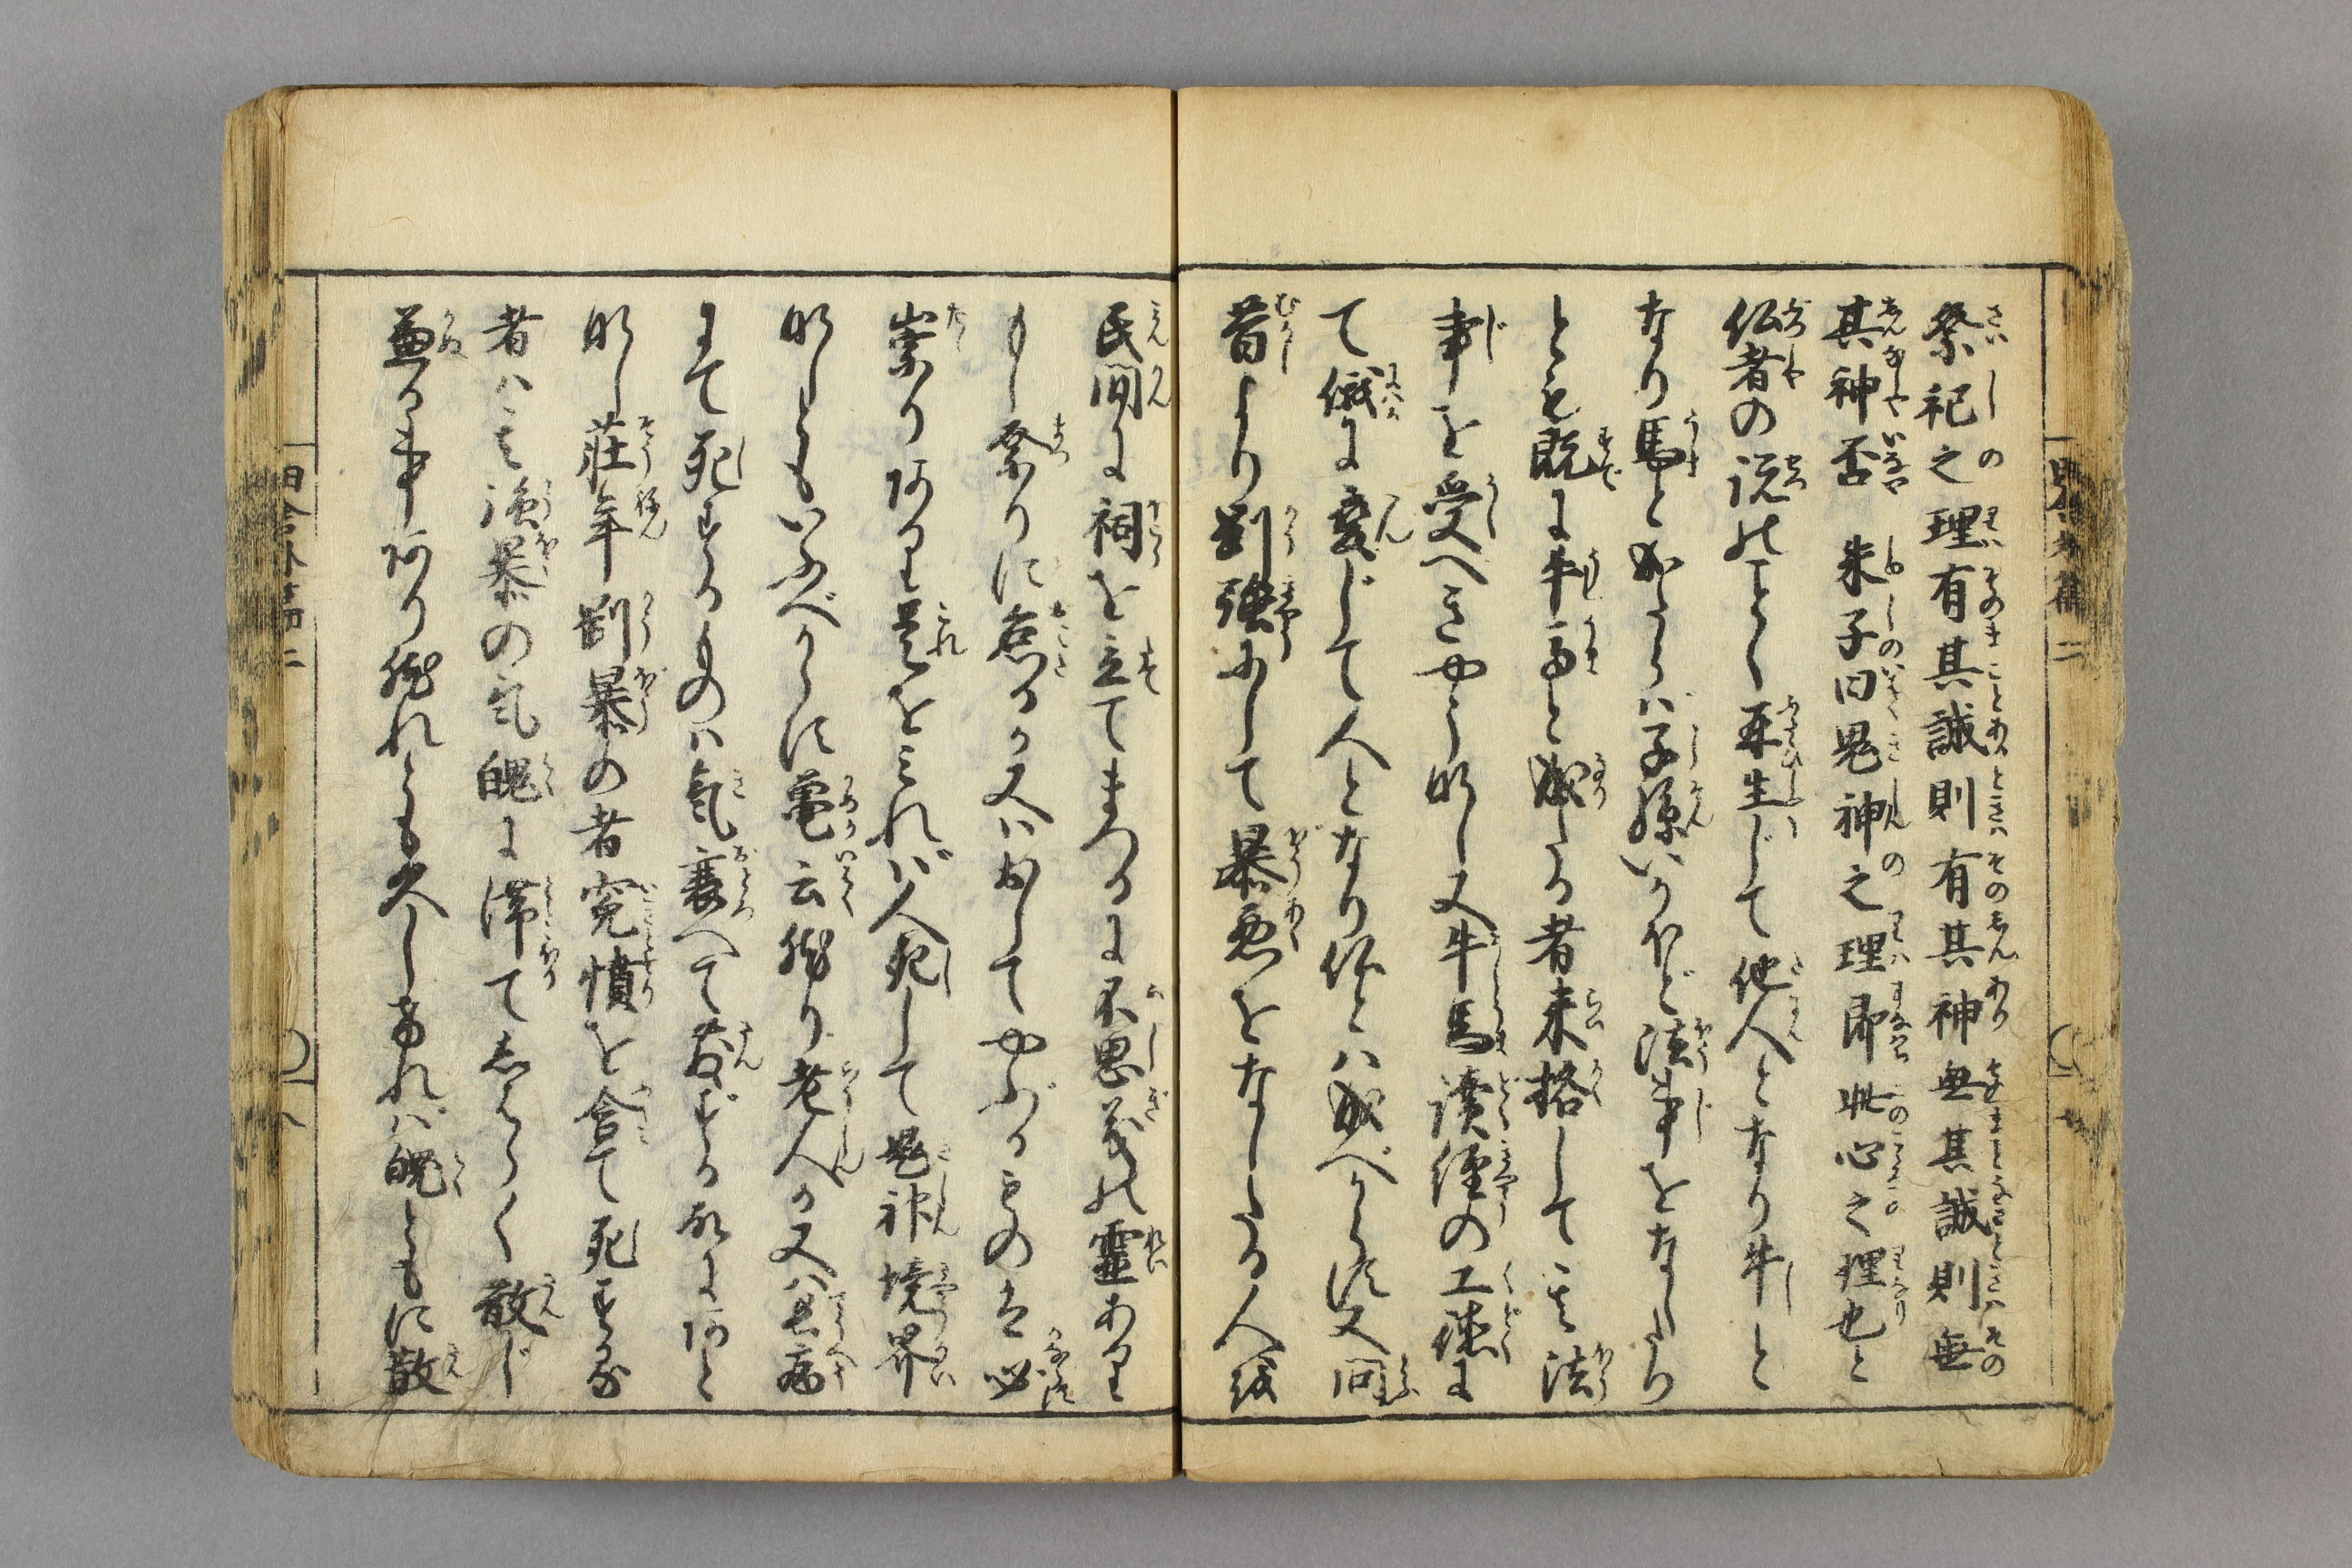 祭祀之理有其誠則有其神無其誠則無
其神否 朱子曰鬼神之理即此心之理也と
仏者の説のごとく再生じて他人となり牛と
なり馬と成たらバ子孫いかほど法事をなしたり
とも既に牛馬と成たる者来格して其法
事を受べきやう那し又牛馬読経の工徳に
て俄に変じて人となり仏とハ成べからず又問
昔より剛強にして暴悪をなしたる人を
民間に祠を立てまつるに不思義の霊あり
もし祭りに怠るか又ハおしてやぶるものは必
祟りあり是を三れバ人死して鬼神境界
那しともいふべからず亀云然り老人か又ハ長病
にて死するものハ気衰へて散ずる故にあと
那し荘年剛暴の者寃憤を含て死する
者ハ其強暴の気魄に滞てしばらく散じ
兼る事あり然れども久しけれバ魄ともに散